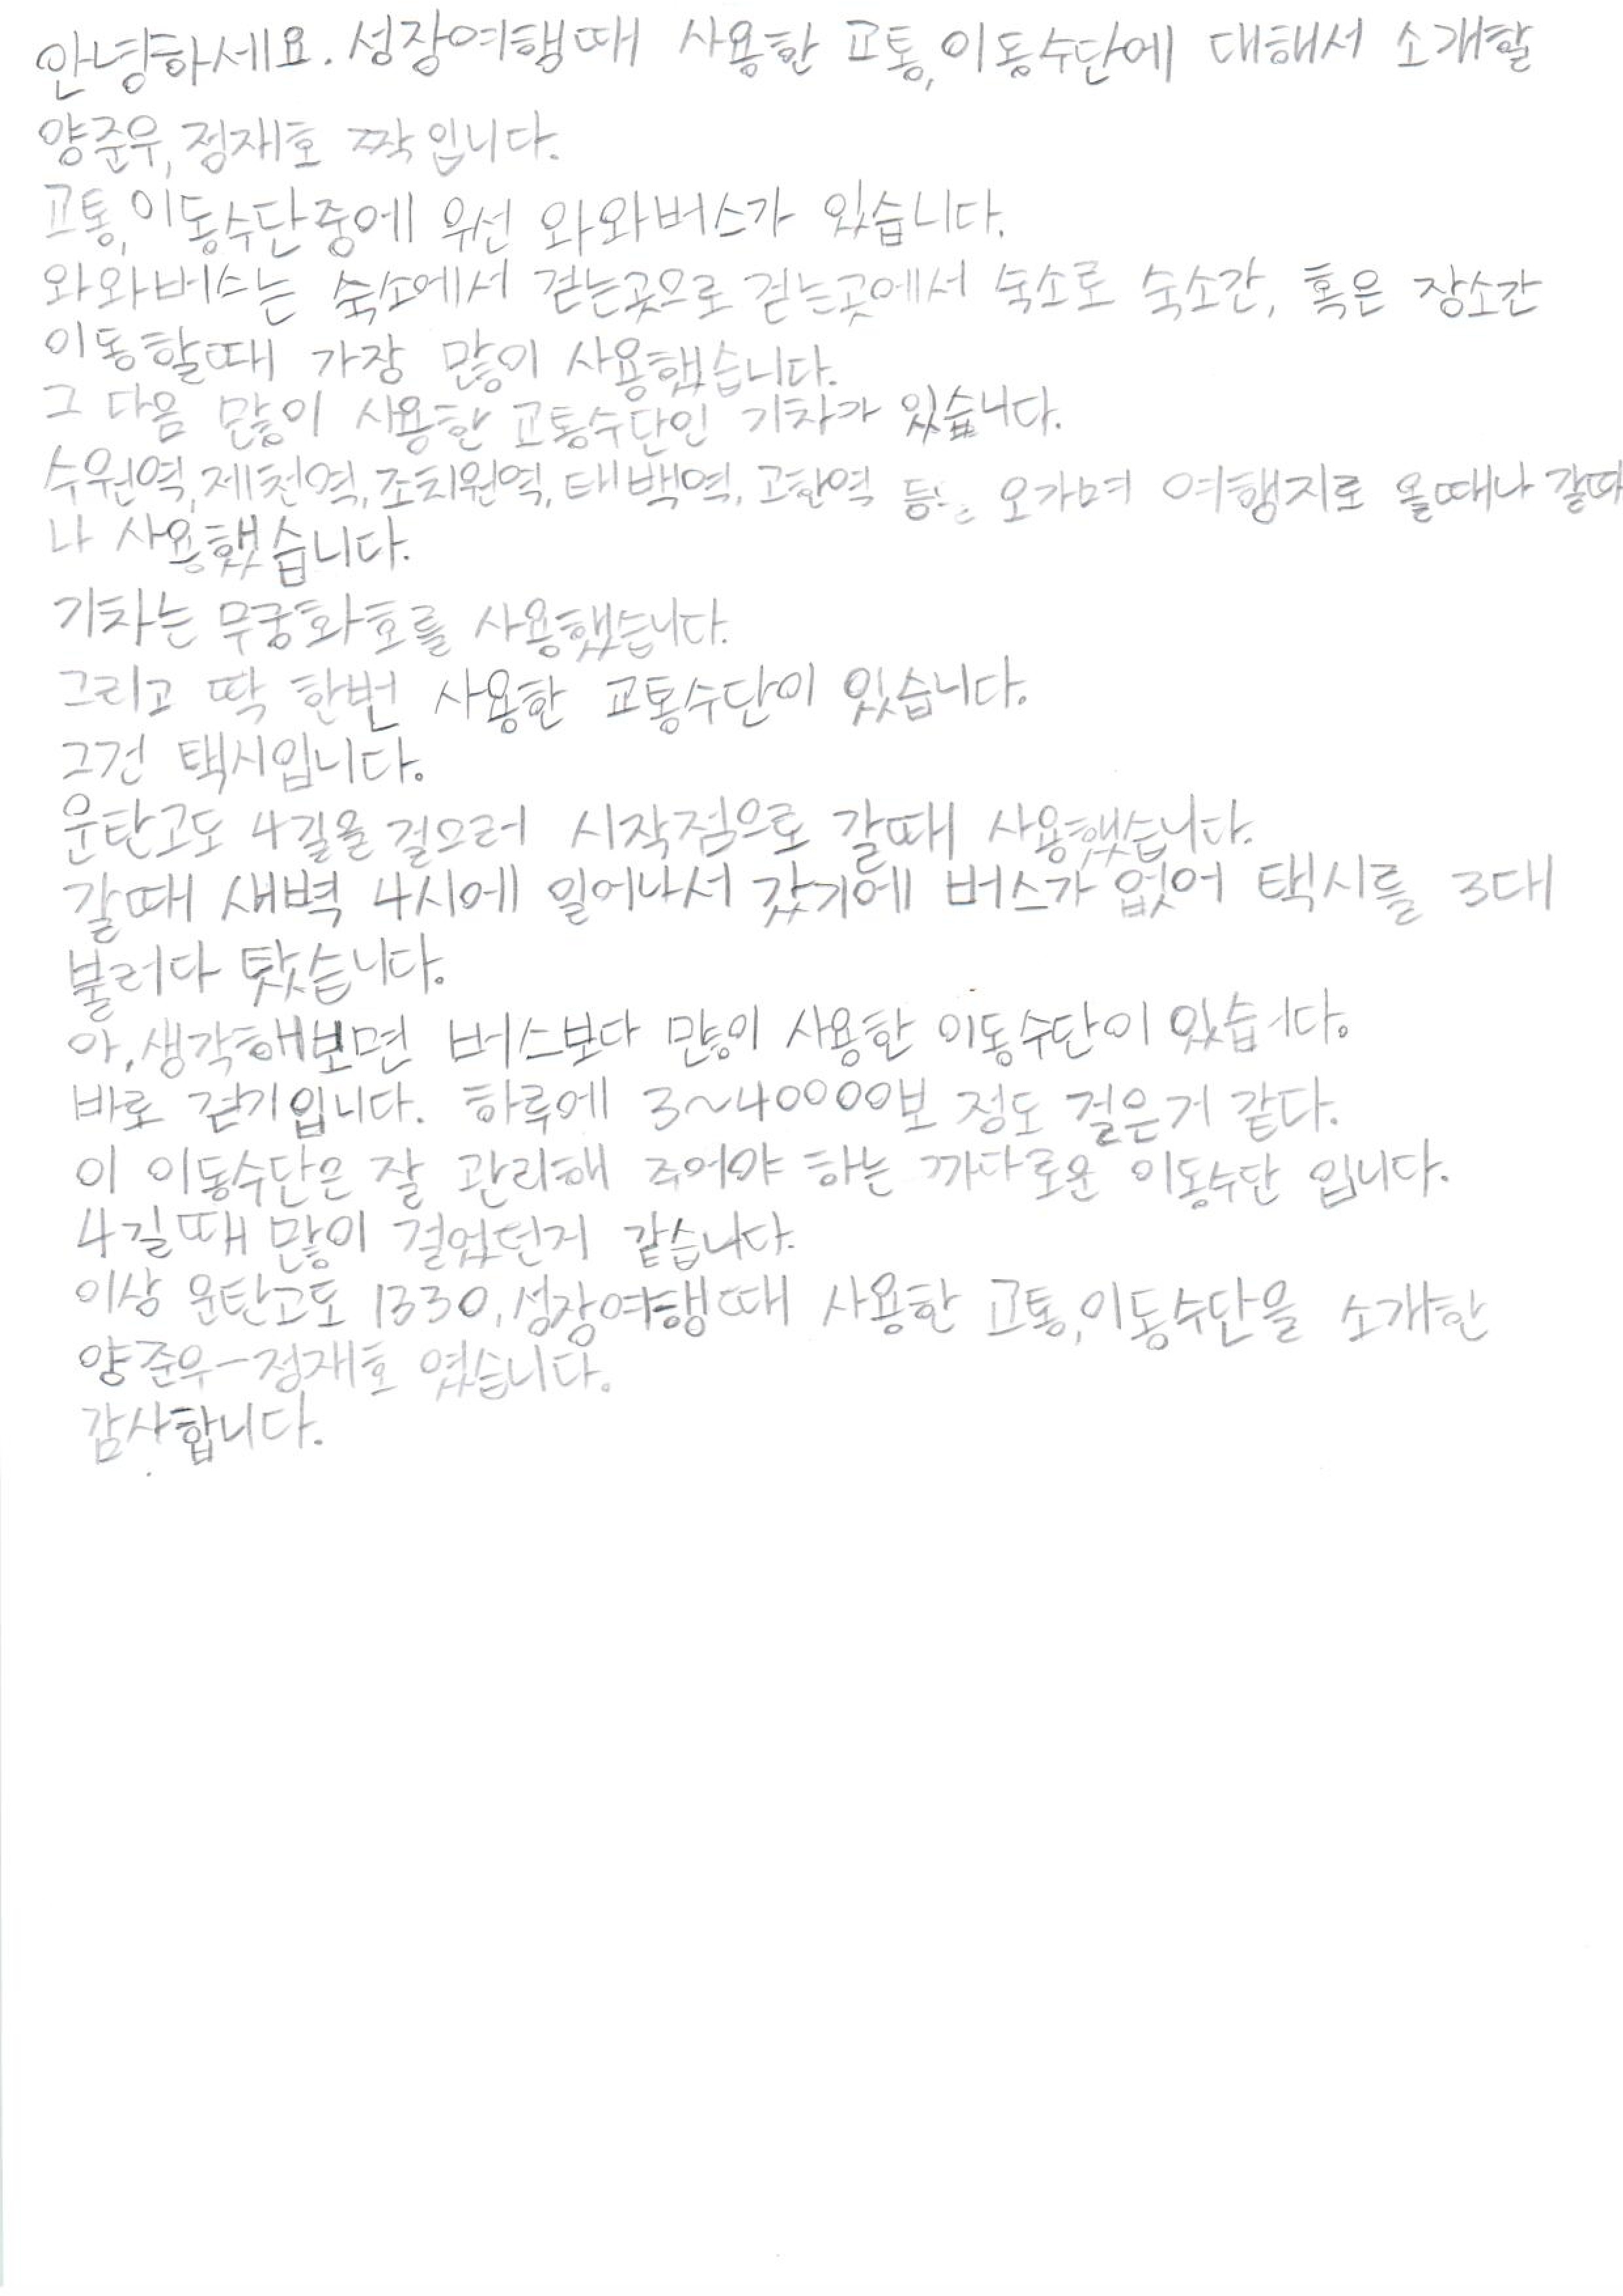 안녕하세요. 성장여행때 사용한 교통,이동수단에 대해서 소개할
양준우,정재호 짝입니다.
교통,이동수단중에 우선 와와버스가 있습니다.
와와버스는 숙소에서 걷는곳으로 걷는곳에서 숙소로 숙소간, 혹은 장소간
이동할때 가장 많이 사용했습니다.
그 다음 많이 사용한 교통수단인 기차가 있습니다.
수원역,제천역,조치원역,태백역,고한역 등을 오가며 여행지로 올때나 갈때
나 사용했습니다.
기차는 무궁화호를 사용했습니다.
그리고 딱 한번 사용한 교통수단이 있습니다.
그건 택시입니다.
운탄고도 4길을 걸으러 시작점으로 갈때 사용했습니다.
갈때 새벽 4시에 일어나서 갔기에 버스가 없어 택시를 3대
불러다 탔습니다.
아,생각해보면 버스보다 많이 사용한 이동수단이 있습니다.
바로 걷기입니다. 하루에 3~40000보 정도 걸은거 같다.
이 이동수단은 잘 관리해 주어야 하는 까다로운 이동수단 입니다.
4길때 많이 걸었던지 같습니다.
이상 운탄고도 1330,성장여행때 사용한 교통,이동수단을 소개한
양준우-정재호 였습니다.
감사합니다.